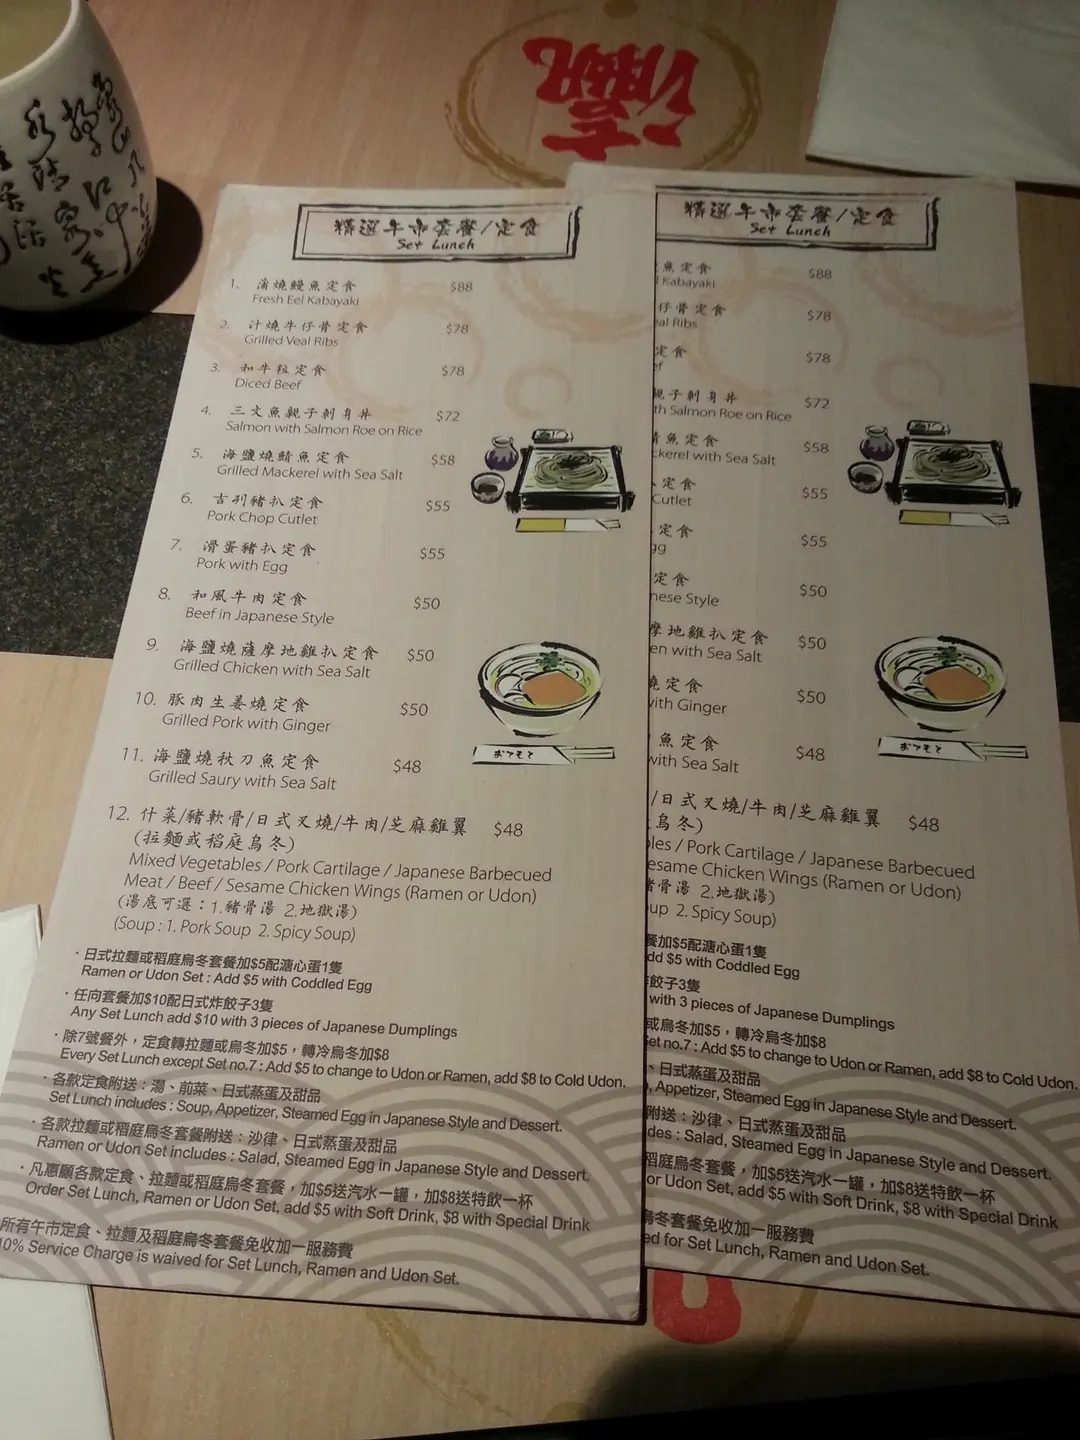 精選午市套餐/定食
Set Lunch
1. 蒲燒鰻魚定食 $88
Fresh Eel Kabayaki
2. 汁燒牛仔骨定食 $78
Grilled Veal Ribs
3. 和牛粒定食 $78
Diced Beef
4. 三文魚親子刺身丼 $72
Salmon with Salmon Roe on Rice
5. 海鹽燒鯖魚定食 $58
Grilled Mackerel with Sea Salt
6. 吉列豬扒定食 $55
Pork Chop Cutlet
7. 滑蛋豬扒定食 $55
Pork with Egg
8. 和風牛肉定食 $50
Beef in Japanese Style
9. 海鹽燒薩摩地雞扒定食 $50
Grilled Chicken with Sea Salt
10. 豚肉生姜燒定食 $50
Grilled Pork with Ginger
11. 海鹽燒秋刀魚定食 $48
Grilled Saury with Sea Salt
おてもと
12. 什菜/豬軟骨/日式叉燒/牛肉/芝麻雞翼 $48
(拉麵或稻庭烏冬)
Mixed Vegetables / Pork Cartilage / Japanese Barbecued
Meat / Beef / Sesame Chicken Wings (Ramen or Udon)
(湯底可選：1.豬骨湯 2.地獄湯)
(Soup : 1. Pork Soup 2. Spicy Soup)
· 日式拉麵或稻庭烏冬套餐加$5配溏心蛋1隻
Ramen or Udon Set : Add $5 with Coddled Egg
· 任向套餐加$10配日式炸餃子3隻
Any Set Lunch add $10 with 3 pieces of Japanese Dumplings
· 除7號餐外，定食轉拉麵或烏冬加$5，轉冷烏冬加$8
Every Set Lunch except Set no.7 : Add $5 to change to Udon or Ramen, add $8 to Cold Udon.
· 各款定食附送：湯、前菜、日式蒸蛋及甜品
Set Lunch includes : Soup, Appetizer, Steamed Egg in Japanese Style and Dessert.
· 各款拉麵或稻庭烏冬套餐附送：沙律、日式蒸蛋及甜品
Ramen or Udon Set includes : Salad, Steamed Egg in Japanese Style and Dessert.
· 凡惠顧各款定食、拉麵或稻庭烏冬套餐，加$5送汽水一罐，加$8送特飲一杯
Order Set Lunch, Ramen or Udon Set, add $5 with Soft Drink, $8 with Special Drink
所有午市定食、拉麵及稻庭烏冬套餐免收加一服務費
10% Service Charge is waived for Set Lunch, Ramen and Udon Set.
精選午市套餐/定食
Set Lunch
魚定食 $88
Kabayaki
仔骨定食 $78
al Ribs
定食 $78
f
親子刺身丼 $72
th Salmon Roe on Rice
魚定食 $58
ckerel with Sea Salt
定食 $55
Cutlet
定食 $55
gg
定食 $50
nese Style
摩地雞扒定食 $50
en with Sea Salt
燒定食 $50
with Ginger
魚定食 $48
with Sea Salt
おてもと
/日式叉燒/牛肉/芝麻雞翼 $48
烏冬)
les / Pork Cartilage / Japanese Barbecued
esame Chicken Wings (Ramen or Udon)
豬骨湯 2.地獄湯)
up 2. Spicy Soup)
餐加$5配溏心蛋1隻
dd $5 with Coddled Egg
餃子3隻
with 3 pieces of Japanese Dumplings
或烏冬加$5，轉冷烏冬加$8
Set no.7 : Add $5 to change to Udon or Ramen, add $8 to Cold Udon.
、日式蒸蛋及甜品
, Appetizer, Steamed Egg in Japanese Style and Dessert.
附送：沙律、日式蒸蛋及甜品
des : Salad, Steamed Egg in Japanese Style and Dessert.
稻庭烏冬套餐，加$5送汽水一罐，加$8送特飲一杯
or Udon Set, add $5 with Soft Drink, $8 with Special Drink
烏冬套餐免收加一服務費
ed for Set Lunch, Ramen and Udon Set.